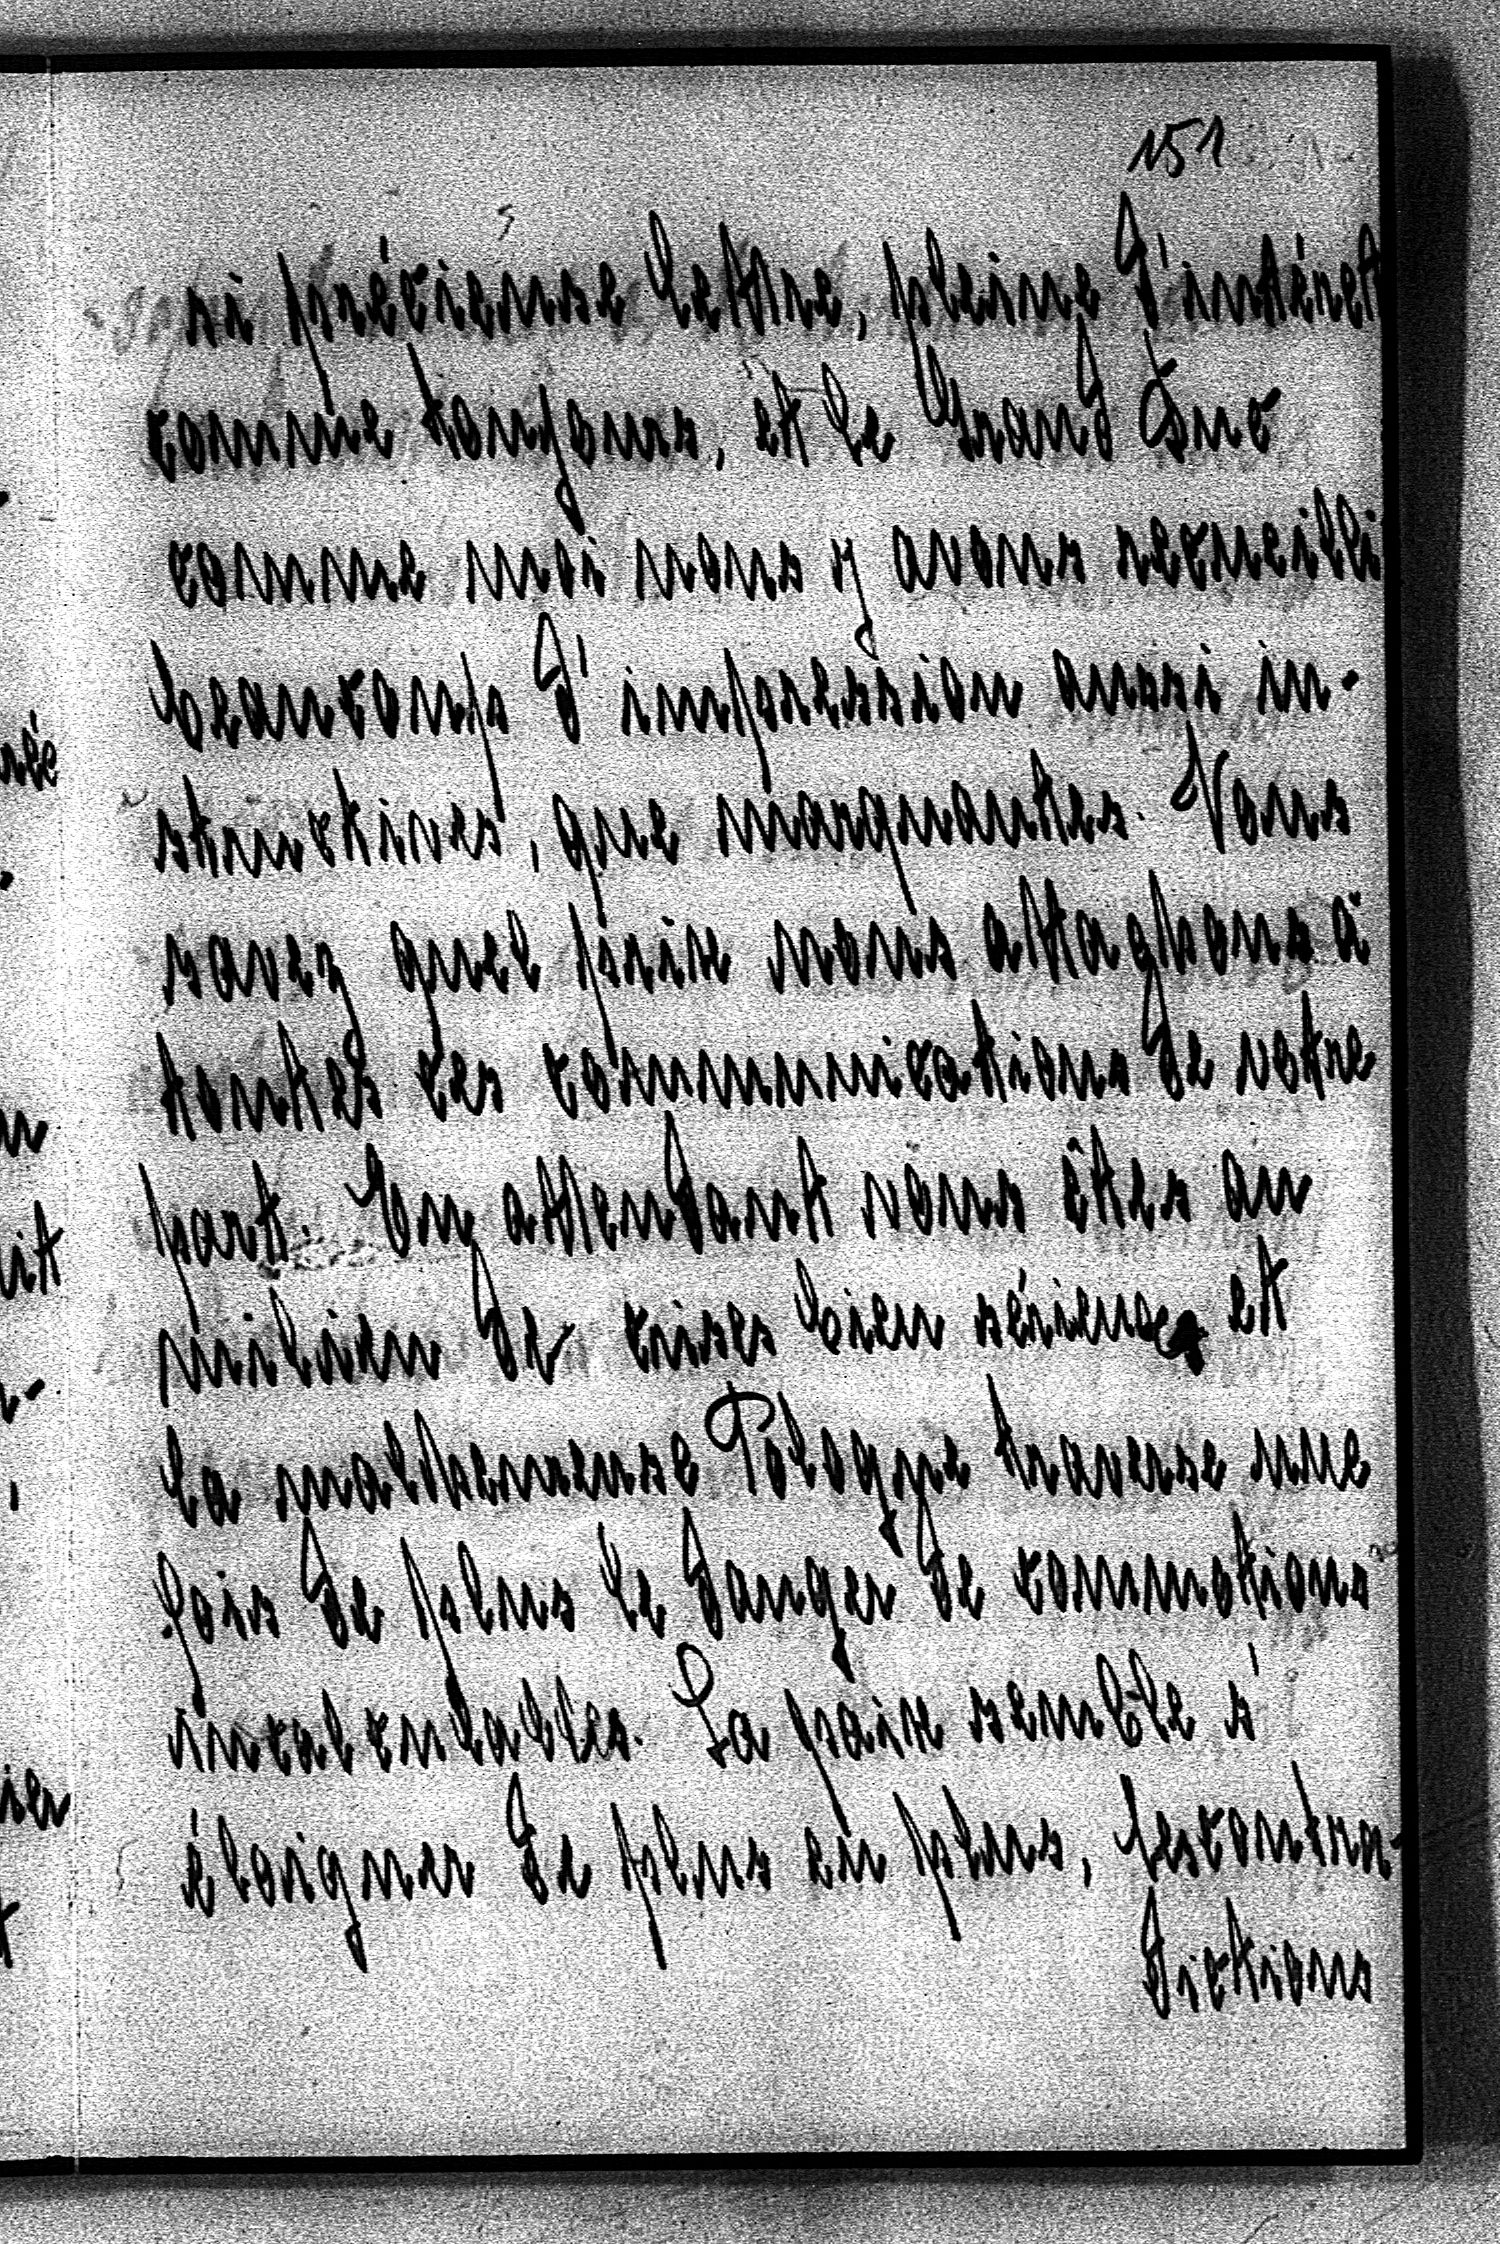 151
si précieuse lettre, pleine d'intéret
comme toujours, et le Grand Duc
comme moi nous y avons recueilli
beaucoup d'impression aussi in-
structives, que marquantes. Vous
savez quel prix nous attaghons à
toutes ces communications de votre
part. En attendant nous êtes au
milieu de crises bien sérieuses et
la malheureuse Pologne traverse une
fois de plus le danger de commotions
incalculables. La paix semble s'
éloigner de plus en plus, les contra-
dictions